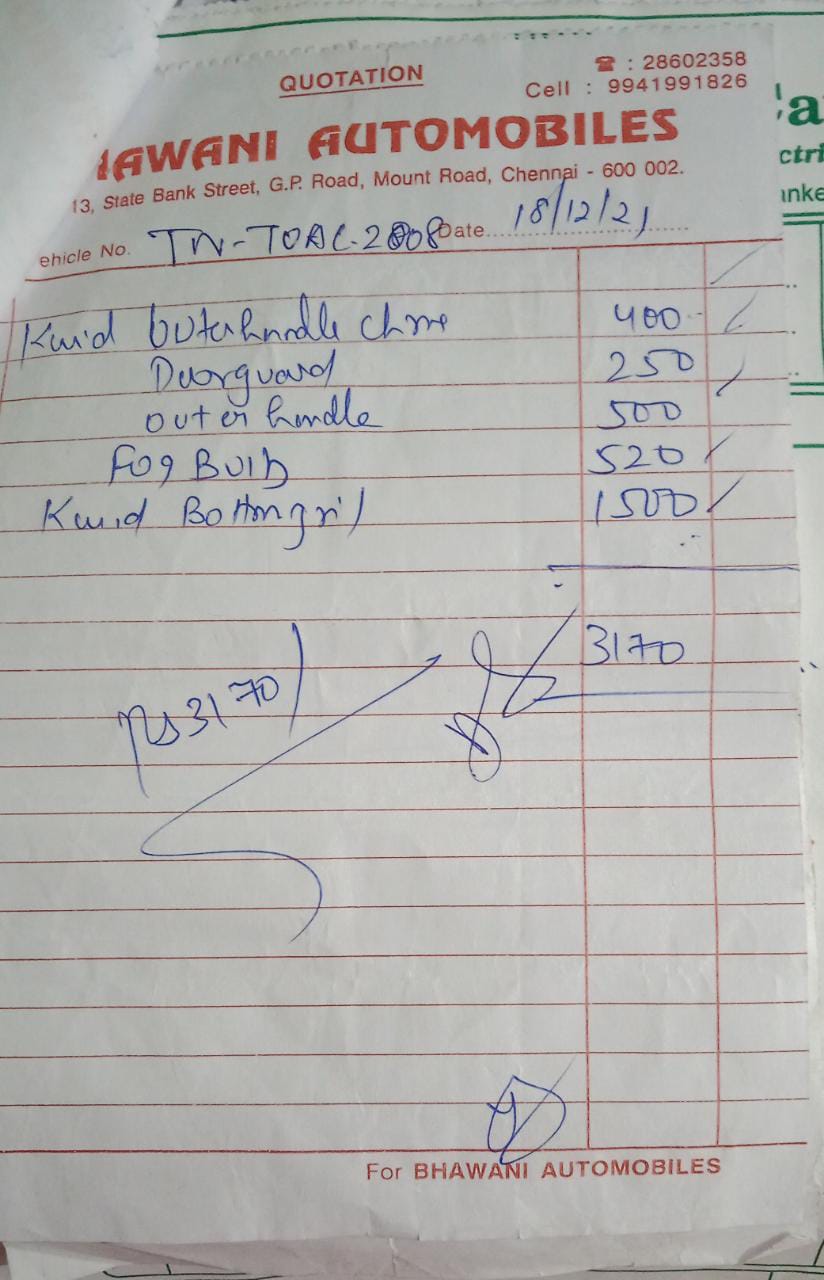 QUOTATION
☎ : 28602358
Cell : 9941991826
HAWANI AUTOMOBILES
13, State Bank Street, G.P. Road, Mount Road, Chennai - 600 002.
ehicle No. TN-TOAC-2808 Date 18/12/21
Kwid outerhandle chrme 400
Doorguard 250
outer handle 500
Fog Bulb 520
Kwid Bottomgril 1500
3170
Rs 3170
For BHAWANI AUTOMOBILES
ctri
anke